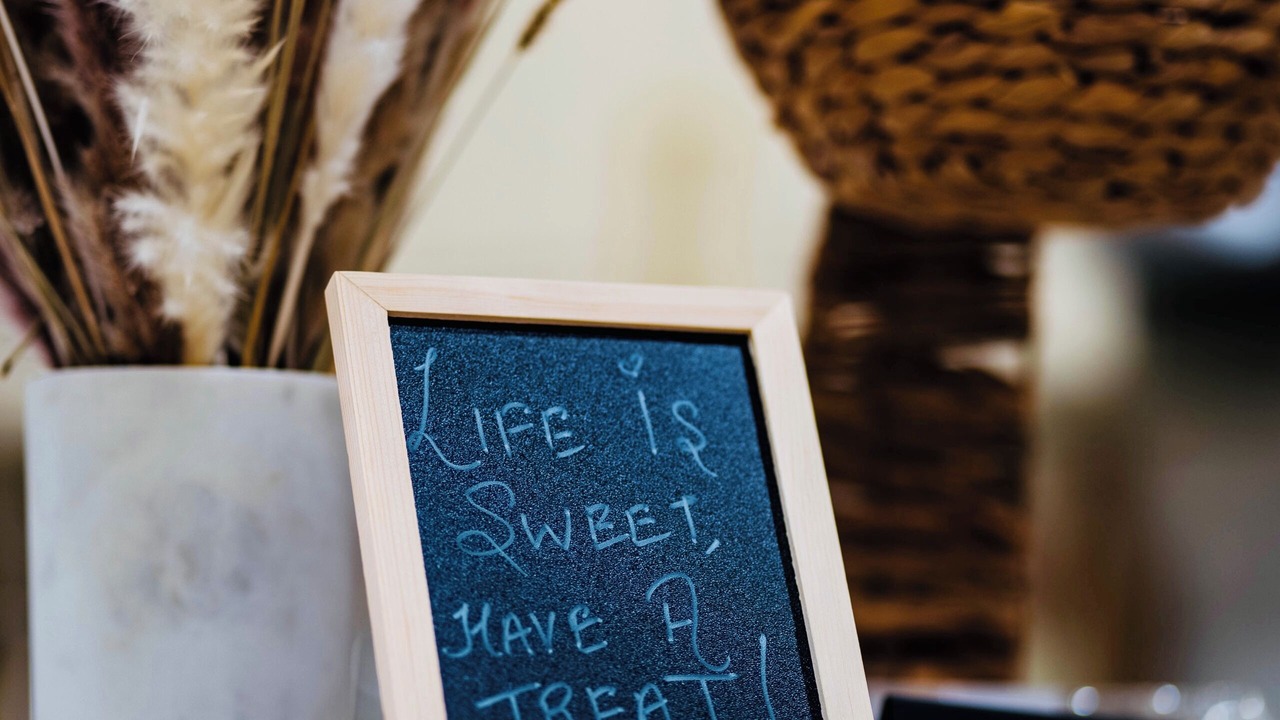 LIFE iS
SWEET,
HAVE A
TREAT!